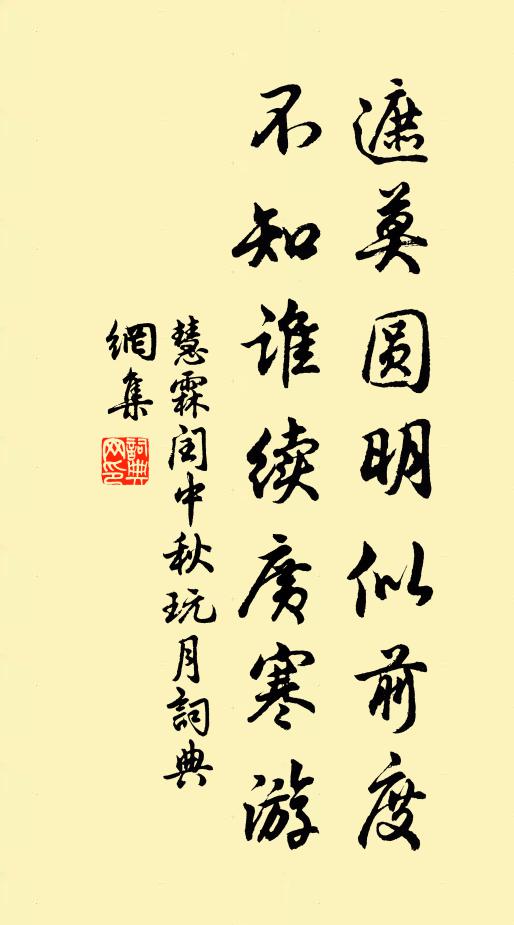 遮莫圆明似前度
不知谁续廣寒游
慧霖闰中秋玩月詞典
網集
詞典网印